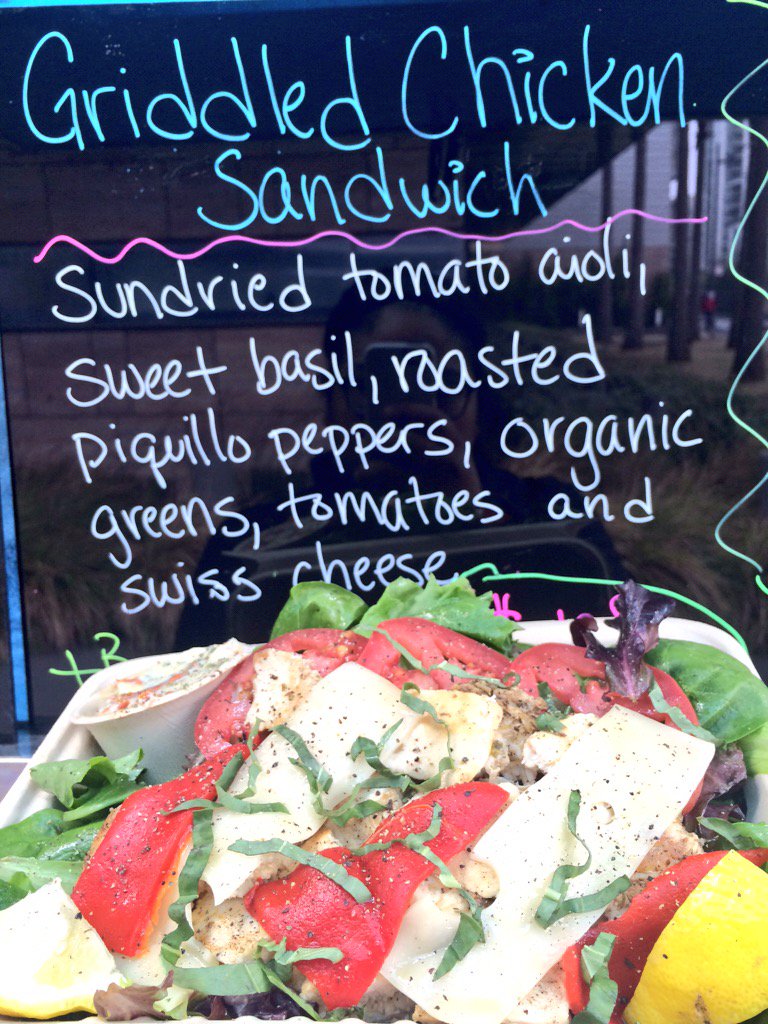 Griddled Chicken
Sandwich
Sundried tomato aioli,
sweet basil, roasted
piquillo peppers, organic
greens, tomatoes and
swiss cheese